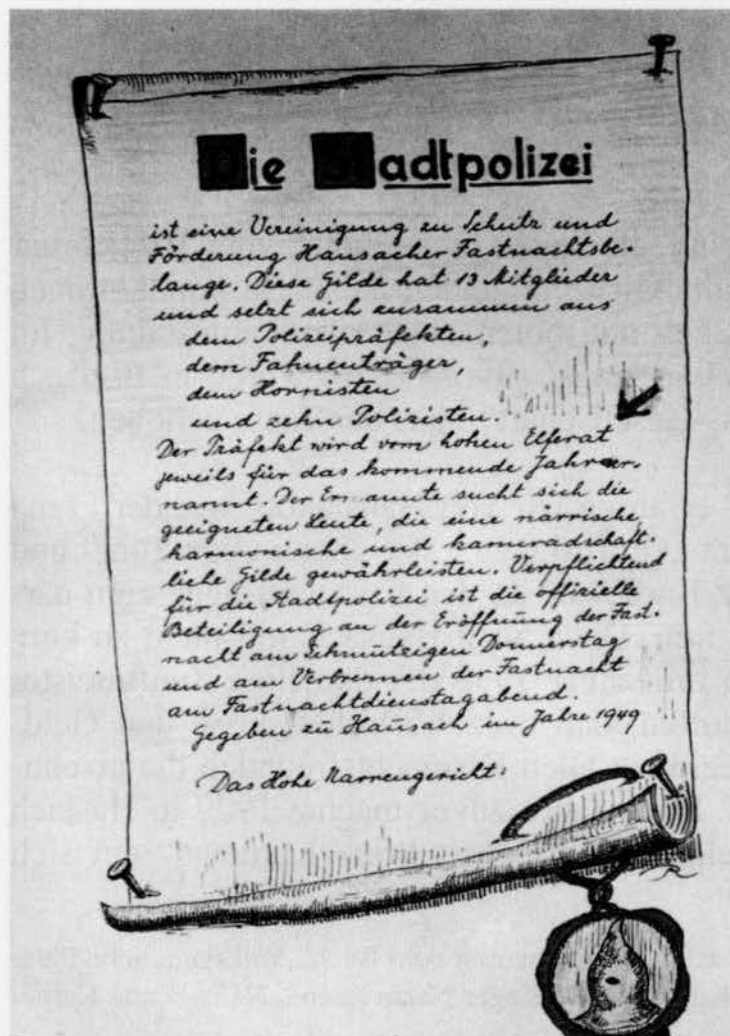 Die Stadtpolizei
ist eine Vereinigung zu Schutz und
Förderung Hausacher Fastnachtsbe-
lange. Diese Gilde hat 13 Mitglieder
und setzt sich zusammen aus
dem Polizeipräfekten,
dem Fahnenträger,
dem Hornisten
und zehn Polizisten.
Der Präfekt wird vom hohen Elferat
jeweils für das kommende Jahr er-
nannt. Der Ernannte sucht sich die
geeigneten Leute, die eine närrische,
harmonische und kameradschaft-
liche Gilde gewährleisten. Verpflichtend
für die Stadtpolizei ist die offizielle
Beteiligung an der Eröffnung der Fast-
nacht am Schmutzigen Donnerstag
und am Verbrennen der Fastnacht
am Fastnachtdienstagabend.
Gegeben zu Hausach im Jahre 1949
Das Hohe Narrengericht.
R